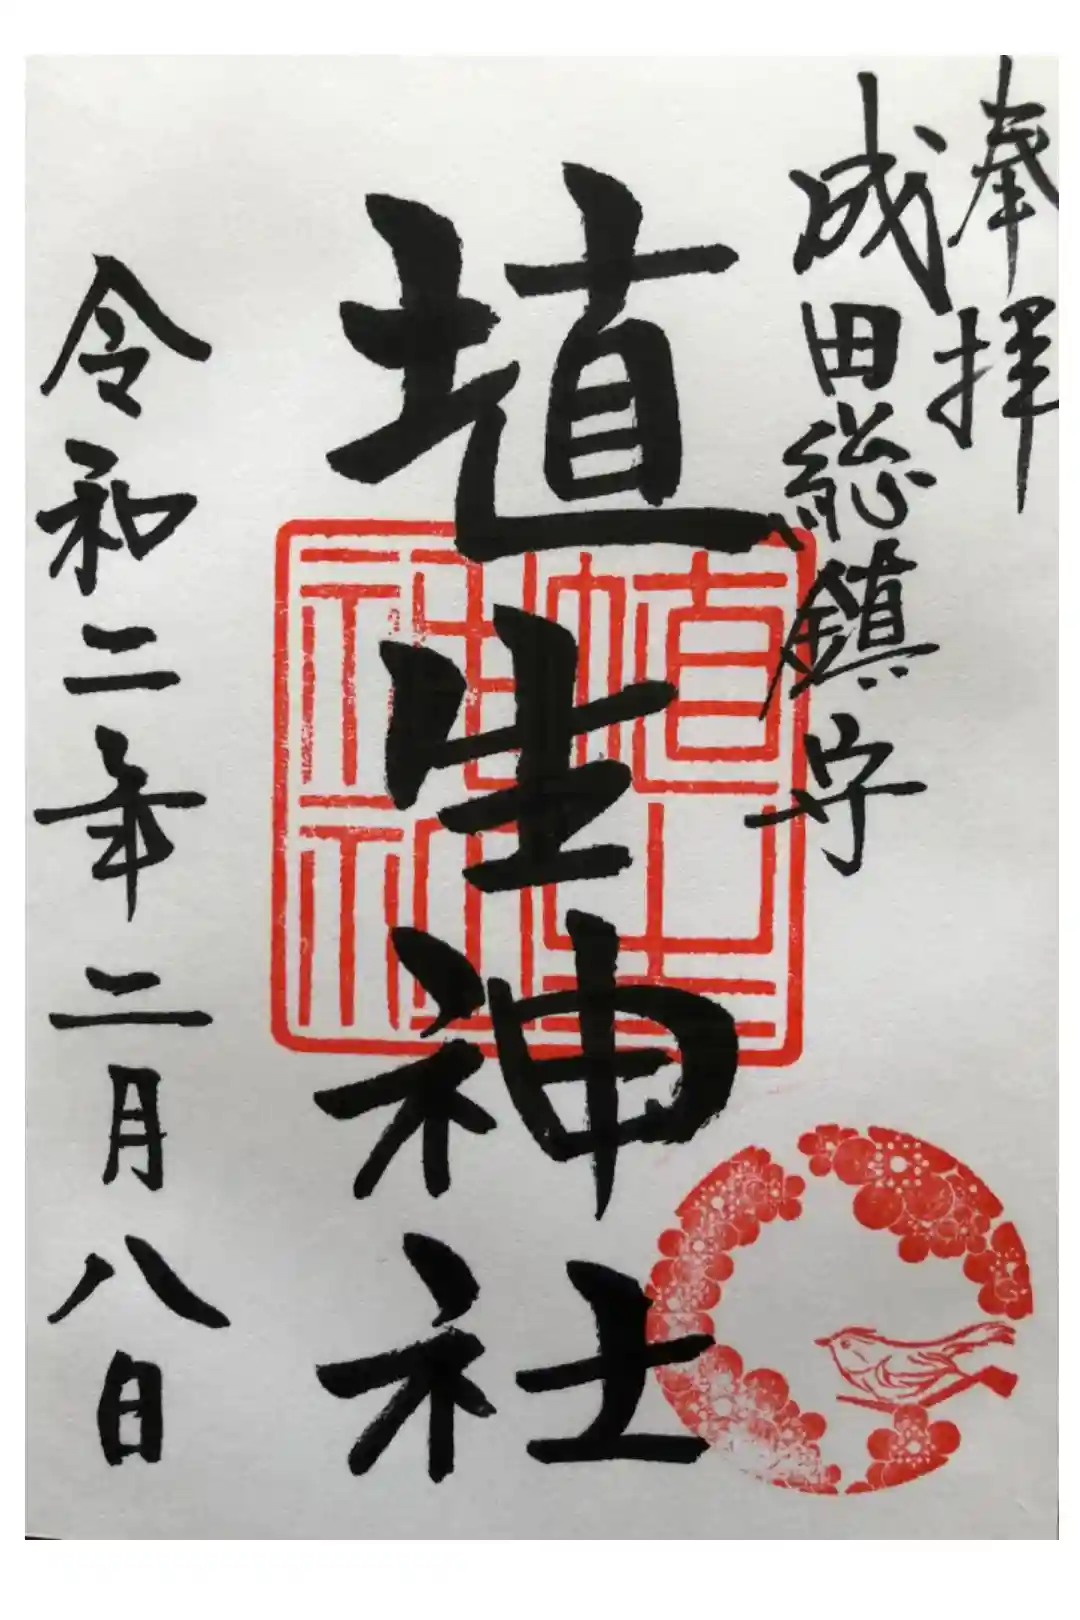 奉拝
成田総鎮守
埴生神社
埴生神社
令和二年二月八日